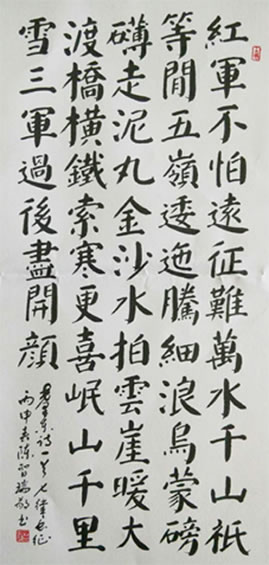 紅軍不怕遠征難萬水千山祇
等閒五嶺逶迤騰細浪烏蒙磅
礴走泥丸金沙水拍雲崖暖大
渡橋橫鐵索寒更喜岷山千里
雪三軍過後盡開顏
毛澤東詩一首七律長征
丙申春陳智瑞書